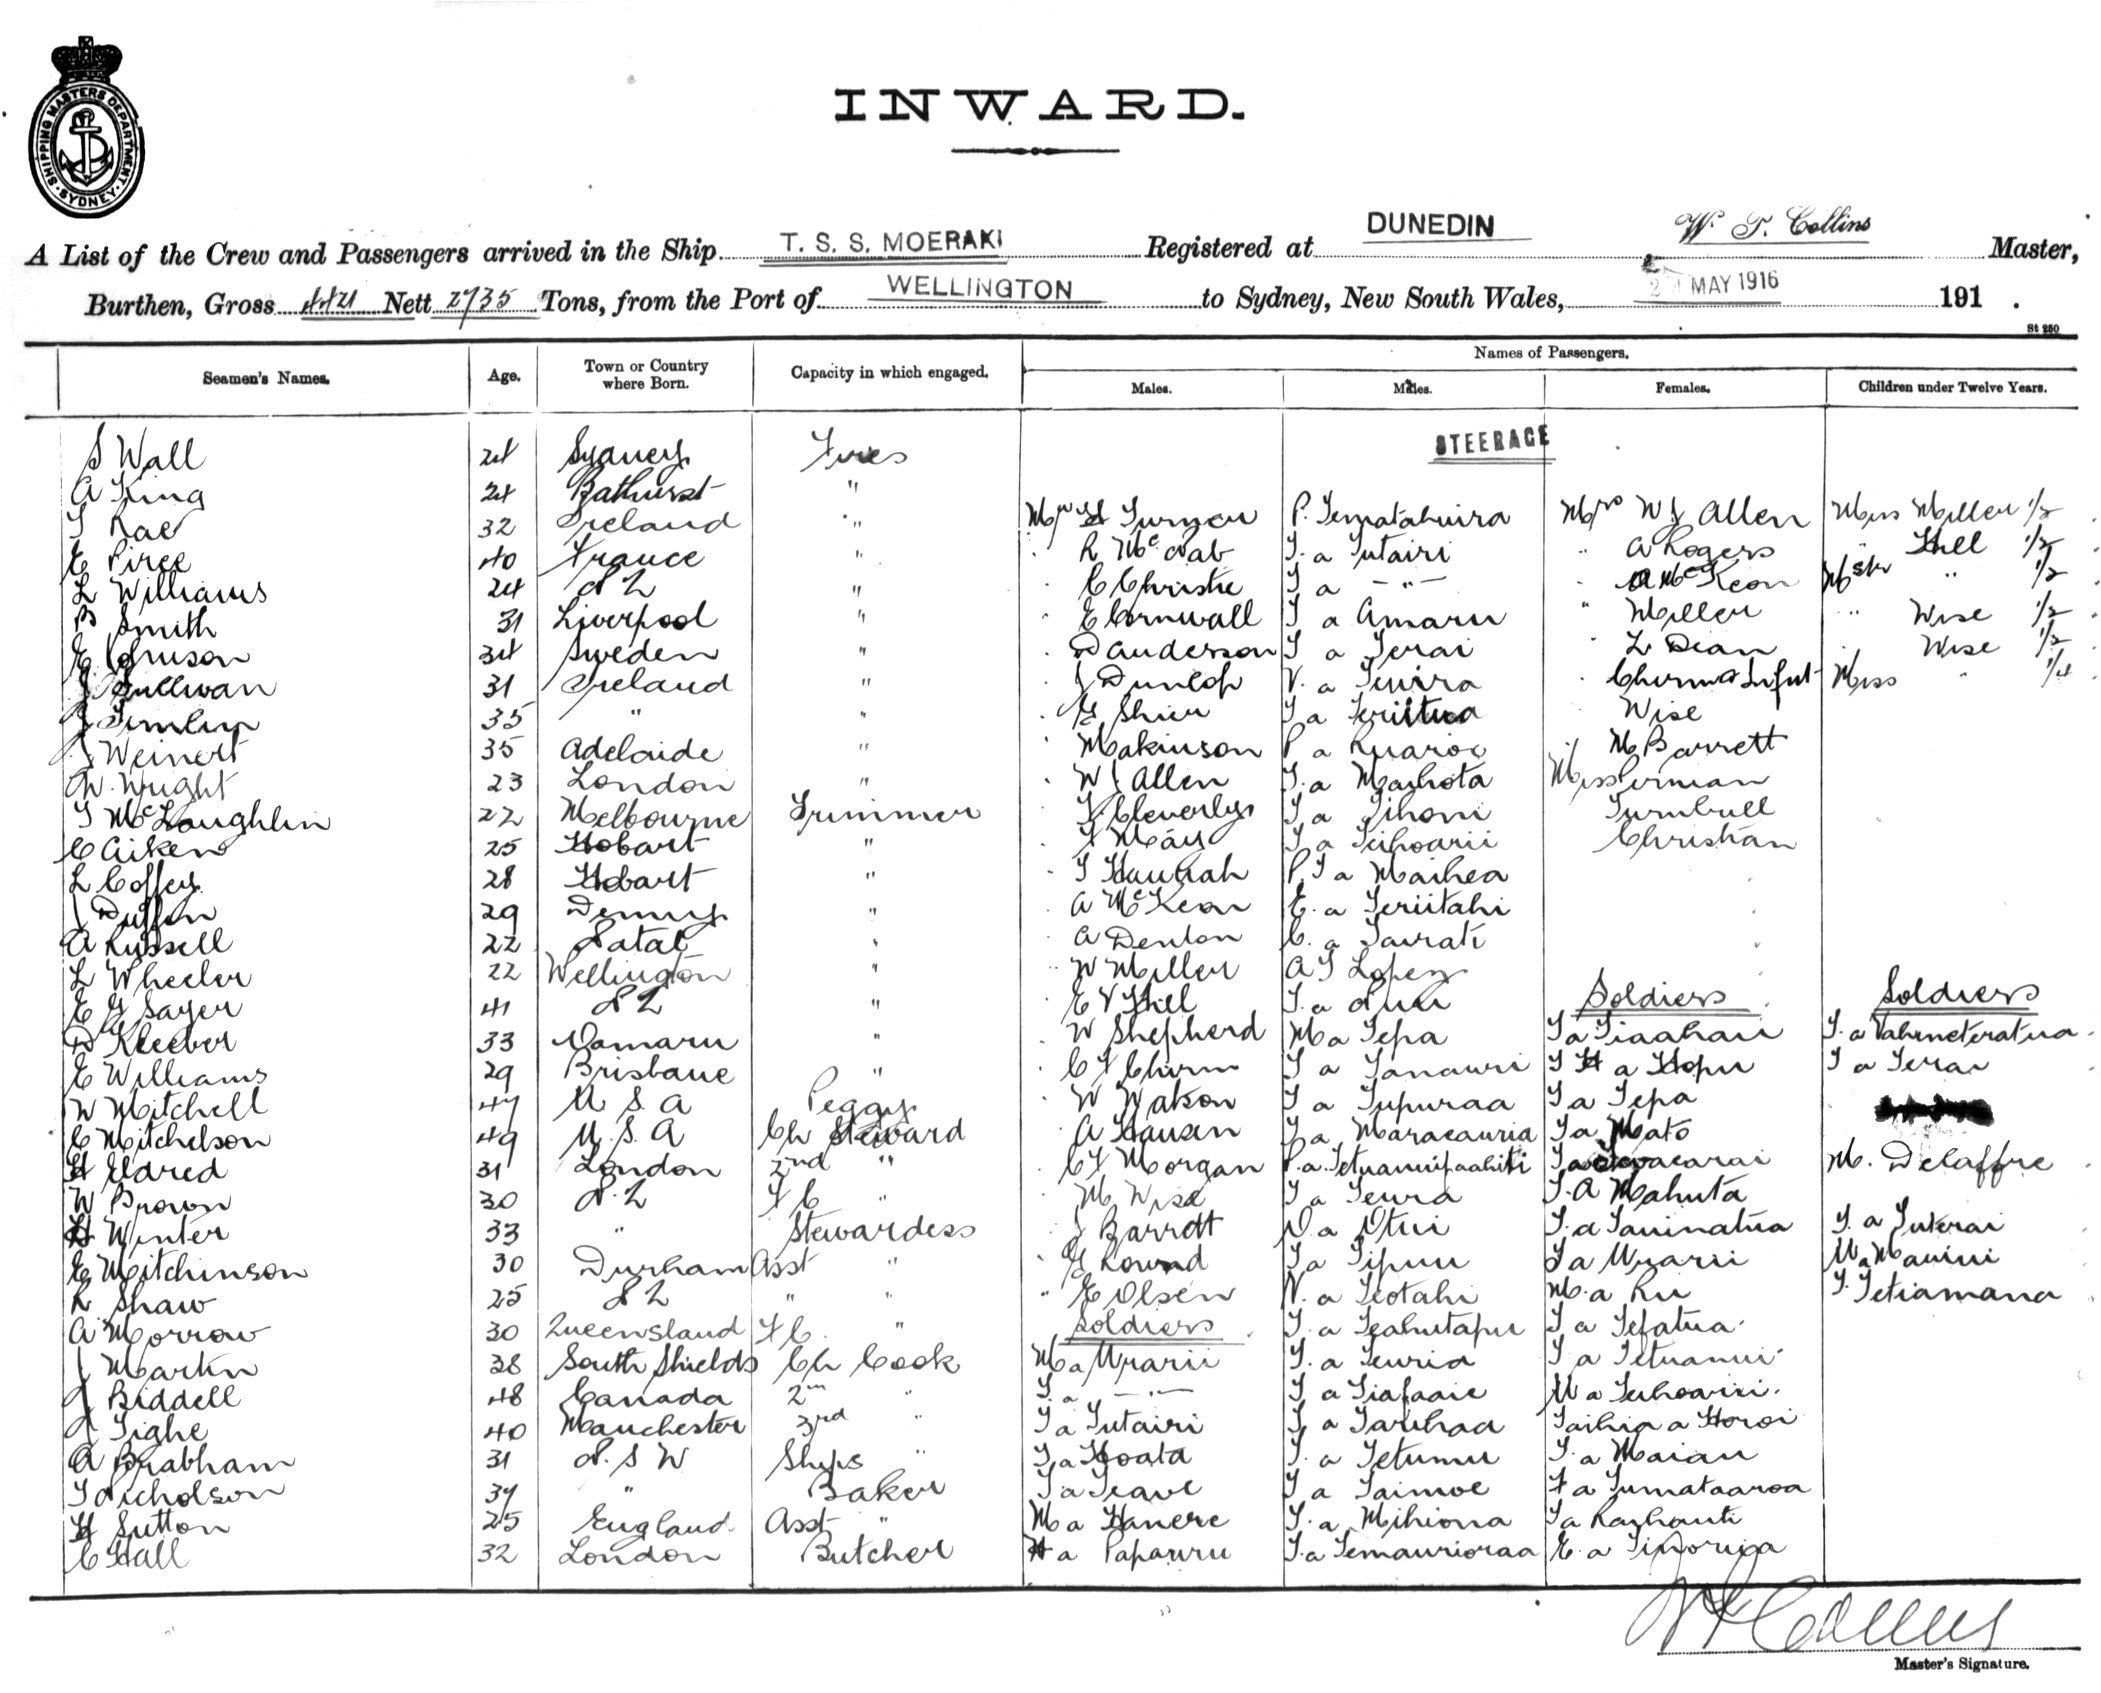 SHIPPING MASTERS DEPARTMENT · SYDNEY ·
INWARD.
A List of the Crew and Passengers arrived in the Ship T. S. S. MOERAKI Registered at DUNEDIN W. T. Collins Master,
Burthen, Gross 4421 Nett 2735 Tons, from the Port of WELLINGTON to Sydney, New South Wales, MAY 1916 191 .
St 250
Seamen's Names. Age. Town or Country where Born. Capacity in which engaged. Names of Passengers.
Males. Males. Females. Children under Twelve Years.
STEERAGE
S Wall 24 Sydney Fires
A King 24 Bathurst "
T Rae 32 Ireland " H Turner P. Tematahuira Mrs W J Allen Miss Miller 1/2
E Piree 40 France " R McNab T. a Tutairi " A Rogers " Hill 1/2
L Williams 24 N Z " C Christie T a - " - " A McKeon Mstr " 1/2
B Smith 31 Liverpool " E Cornwall T a Amaru " Miller " Wise 1/2
E Johnson 34 Sweden " D Anderson T a Terai " L Dean " Wise 1/2
J Sullivan 31 Ireland " J Dunlop V. a Teuira " Chirm & Infnt Miss " 1/4
J Timlin 35 " " G Shier T a Teriitua Wise
J Weinert 35 Adelaide " Makinson P a Ruaroo " M Barrett
W. Wright 23 London " W J Allen T. a Maihota Miss Perman
T McLoughlin 22 Melbourne Trimmer F Cleverly T a Tihoni Turnbull
C Aiken 25 Hobart " F May T a Teihoarii Christian
L Coffey 28 Hobart " T Hannah P. T a Maihea
J Duffin 29 Denny " A McKeon E. a Teriitahi
A Russell 22 Natal " A Denton C. a Tairati
L Wheeler 22 Wellington " W Miller A T Lopez
E G Sayer 41 N Z " E V Hill T. a Ruu Soldiers Soldiers
D Kleeber 33 Oamaru " W Shepherd M a Tepa T a Tiaahau T. a
E Williams 29 Brisbane " C F Chirm T a Tanauri T H a Hopu T a Terai
W Mitchell 47 U S A Peggy W Watson T a Tupuraa T a Tepa
C Mitchelson 49 U. S. A Ch Steward A Hausen T a Maraeauria T a Mato
H Eldred 31 London 2nd " C F Morgan P. a Tetuanuipaahiti T a M. Delaffre
W Brown 30 N. Z F C " M Wise T a Teura T. A Mahuta
H Winter 33 " Stewardess J Barrott O a Otui T. a Tauinatua T. a Tuterai
E Mitchinson 30 Durham Asst " G Round T a Tipuu T a Urarii U a Mauini
R Shaw 25 N Z " " " E Olsen V. a Teotahi M. a Ru T. Tetiamana
A Morrow 30 Queensland F C. " Soldiers T. a Teahutapu T a Tefatua
J Martin 38 South Shields Ch Cook M a Urarii T. a Teuria T a Tetuanui
J Biddell 48 Canada 2nd " T. a - " - T a Tiafaaie U a Teihoarii.
J Tighe 40 Manchester 3rd " T a Tutairi T. a Taruhaa Taihia a Horoi
A Brabham 31 N. S W Ships " T a Hoata T. a Tetumu T. a Maiau
T Nicholson 34 " Baker T a Teave T a Taimoe F a Tumataaroa
H Sutton 25 England. Asst " M a Hanere T. a Mihiona T a Rayhauti
C Hall 32 London Butcher H a Papauru T. a Temaurioraa E. a Tinorua
W T Collins
Master's Signature.